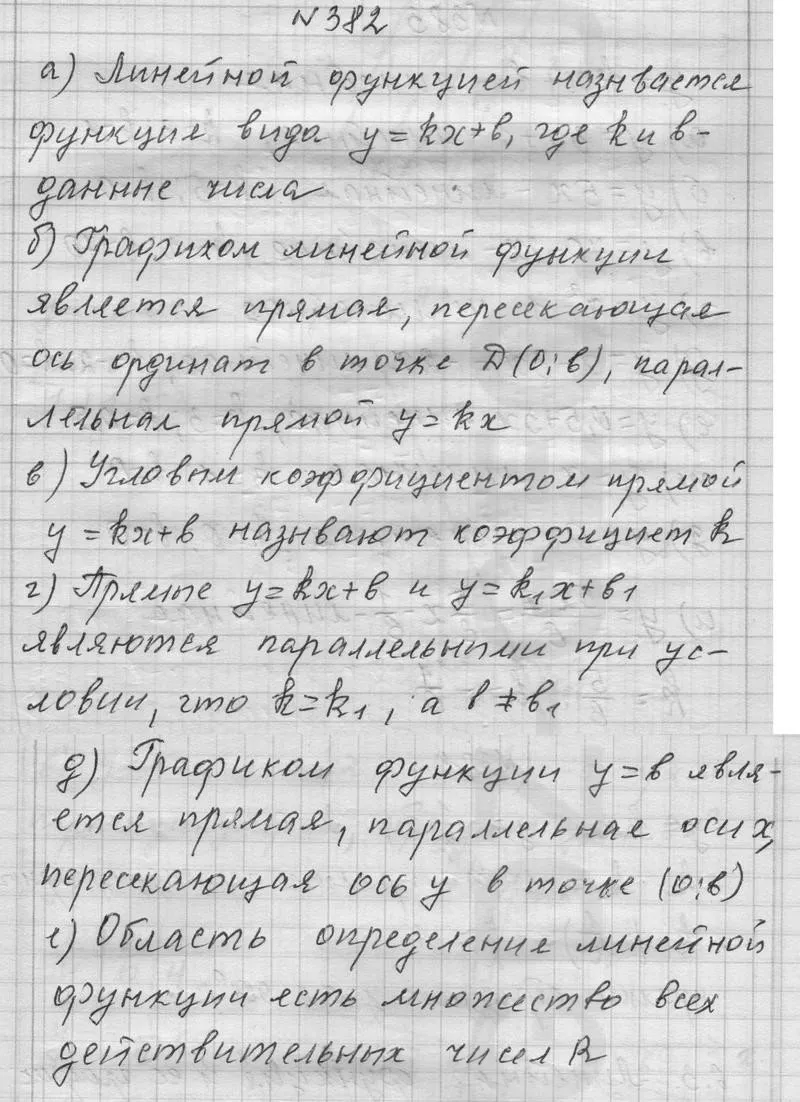 №382
а) Линейной функцией называется
функция вида y=kx+b, где k и b-
данные числа
б) Графиком линейной функции
является прямая, пересекающая
ось ординат в точке D(0;b), парал-
лельная прямой y=kx
в) Угловым коэффициентом прямой
y=kx+b называют коэффициет k
г) Прямые y=kx+b и y=k₁x+b₁
являются параллельными при ус-
ловии, что k=k₁, а b≠b₁
д) Графиком функции y=b явля-
ется прямая, параллельная оси x,
пересекающая ось y в точке (0;b)
е) Область определения линейной
функции есть множество всех
действительных чисел R